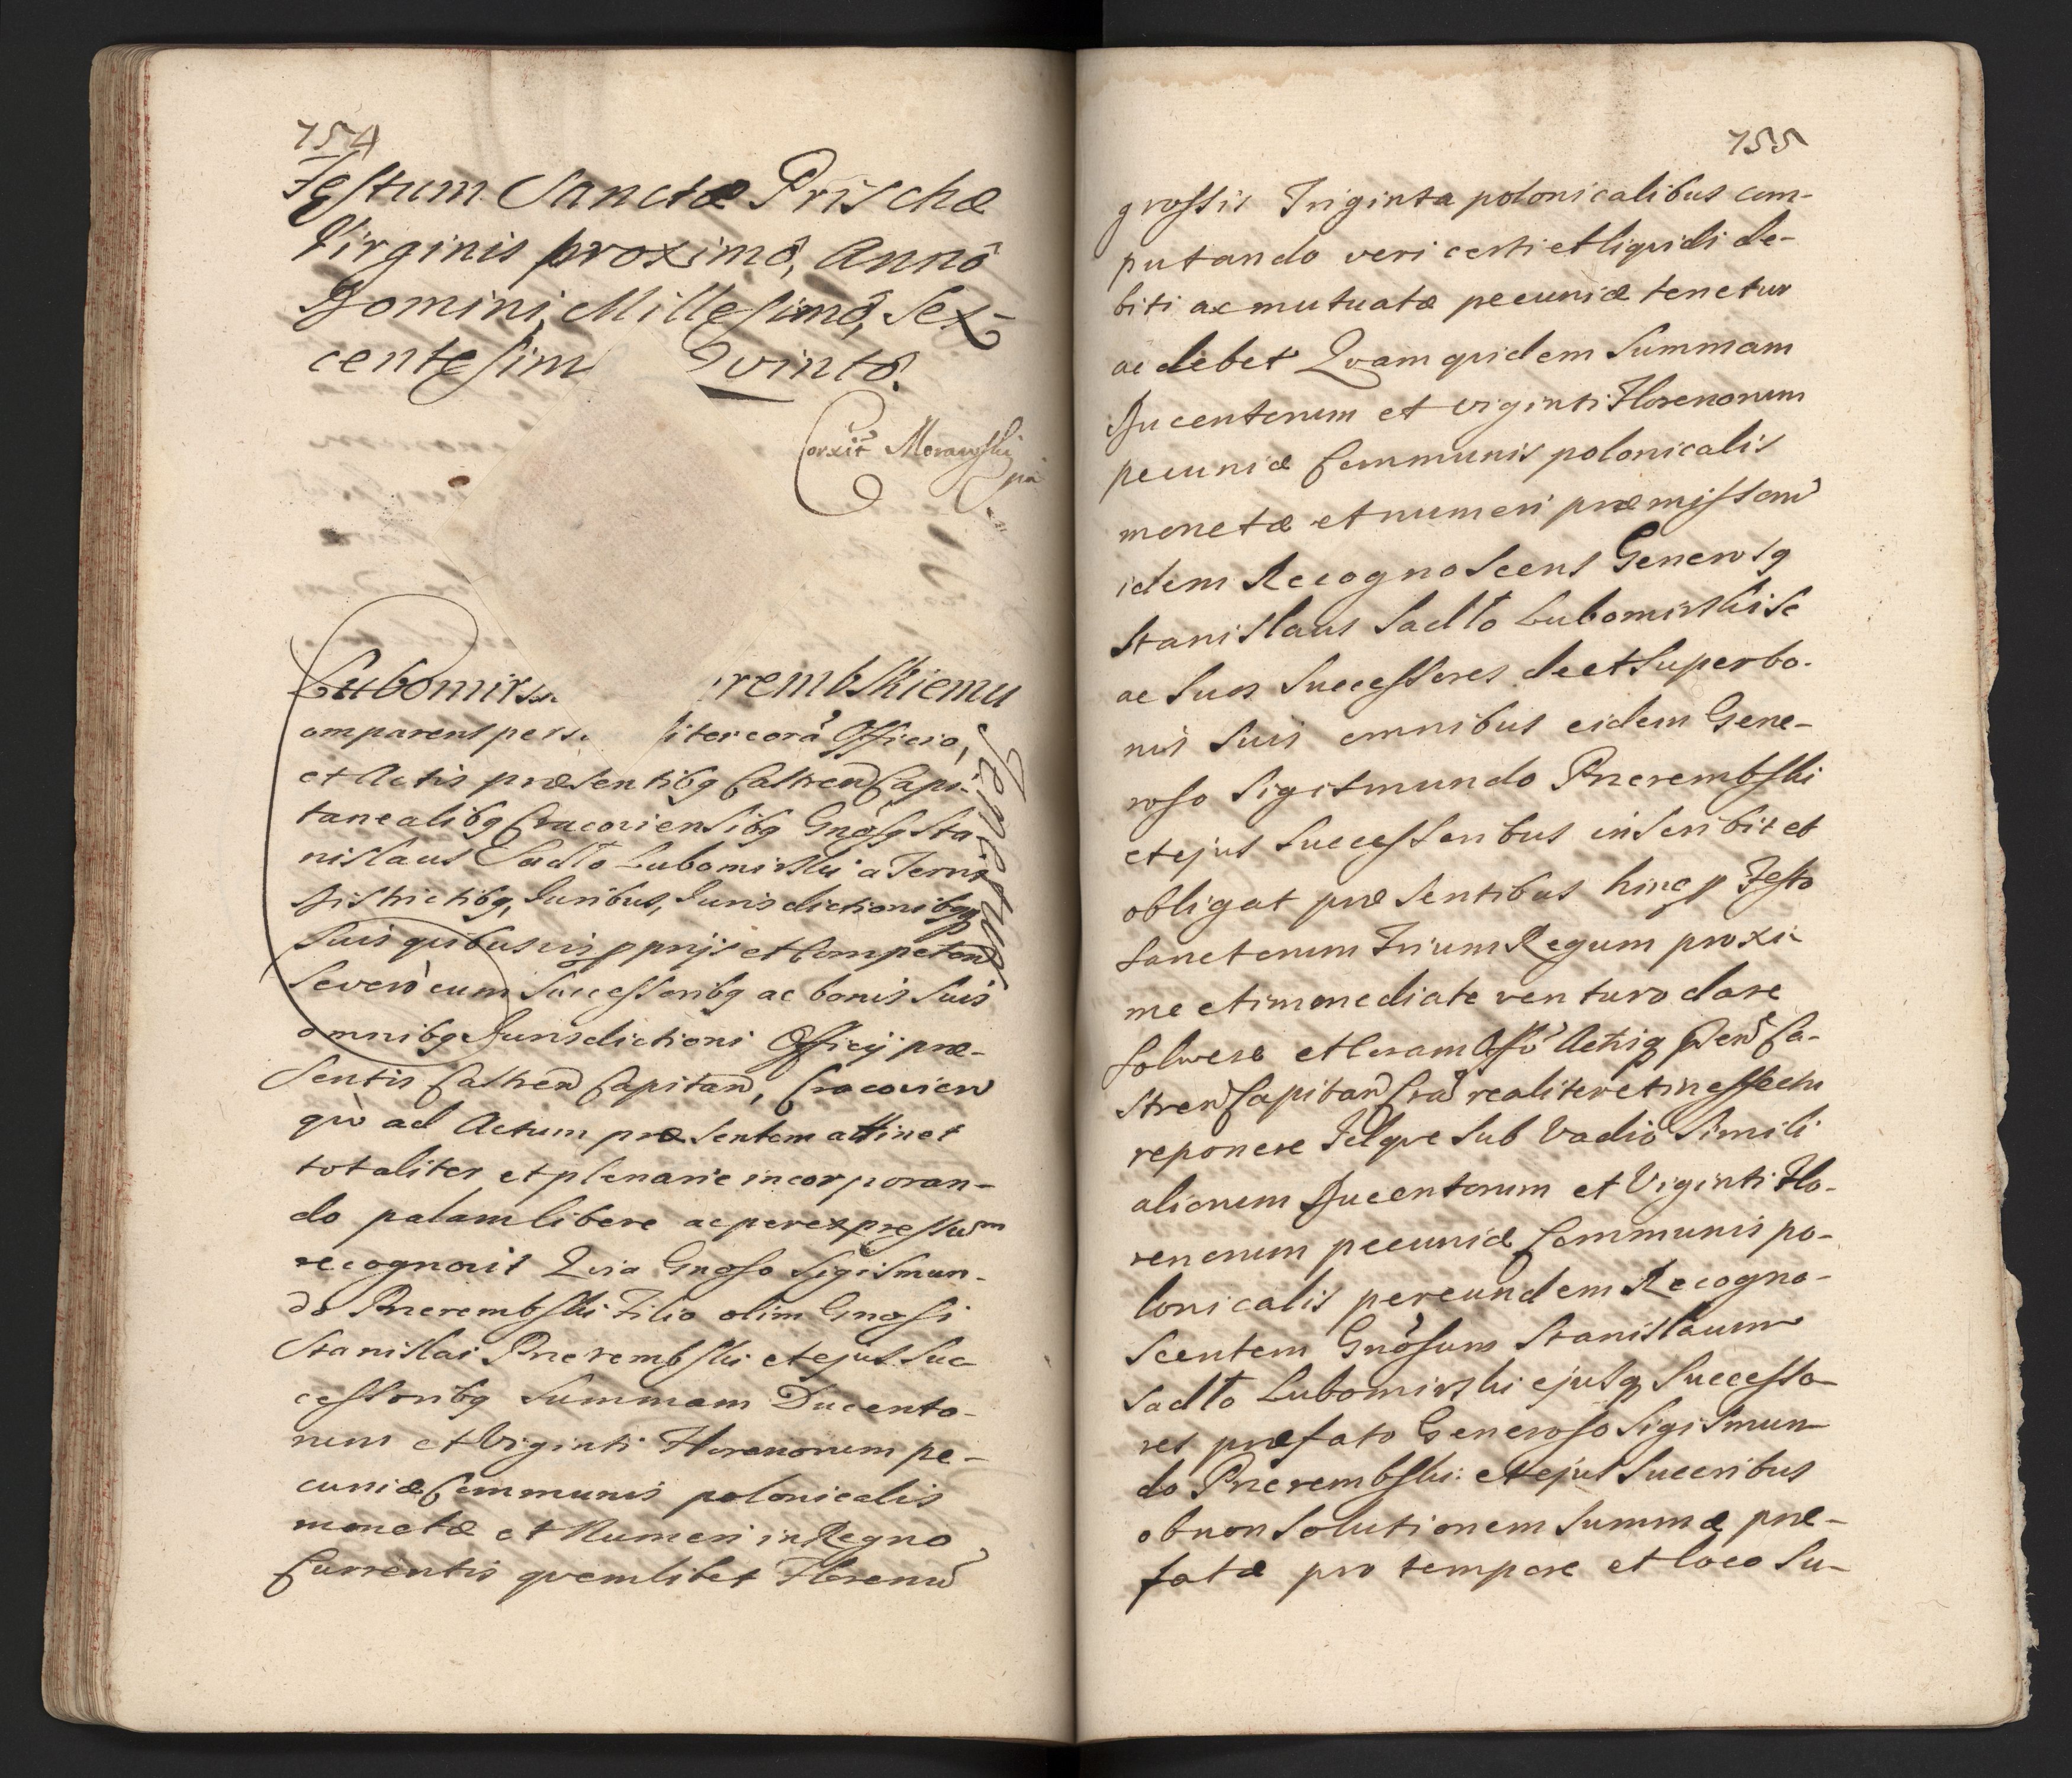 754
Festum Sanctæ Prischæ
Virginis proximô, Annô
Domini Millesimô, Sex-
centesim Qvintô.
Corxit Morawski
Lubomirs rembskiemu
Tenetur
omparens pers iter corã Officio,
et Actis præsentibq Castren Capi-
tanealibq Cracoviensibq Gnosq Sta
nislaus Sadło Lubomirski a Terris
Districtibq, Juribus, Jurisdictionibqq
suis quibusvis pprijs et Competen
Severò cum Successoribq ac bonis suis
omnibq Jurisdictioni Officij præ-
sentis Castren Capitan, Cracovien
qvò ad Actum præsentem attinet
totaliter et plenarie incorporan-
do palam libere ac per expressum
recognovit Qvia Gnoso Sigismun-
do Prerembski Filio olim Gnosi
Stanislai Prerembski et ejus Suc
cessoribq Summam Ducento-
rum et Viginti Florenorum pe-
cuniæ Communis polonicalis
monetæ et Numeri in Regno
Currentis qvemlibet Florenũ
755
grossis Triginta polonicalibus com-
putando veri certi et liqvidi de-
biti ac mutuatæ pecuniæ tenetur
ac debet Qvam qvidem Summam
Ducentorum et viginti Florenorum
pecuniæ Communis polonicalis
monetæ et numeri præmissam
idem Recognoscens Generosq
Stanislaus Sadło Lubomirski se
ac suos Successores de et super bo-
nis suis omnibus eidem Gene-
roso Sigismundo Prerembski
et ejus Successoribus inscribit et
obligat præsentibus hinc p Festo
Sanctorum Trium Regum proxi-
me et immediate venturo dare
solvere et Coram Offo Actisq pen Ca-
stren Capitan Cra realiter et in effectu
reponere Idqve sub Vadio Simili
aliorum Ducentorum et Viginti Flo-
renorum pecuniæ Communis po-
lonicalis per eundem Recogno-
scentem Gnosum Stanislaum
Sadło Lubomirski ejusq Successo-
res præfato Generoso Sigismun-
do Prerembski et ejus Succribus
ob non Solutionem Summæ præ-
fatæ pro tempore et loco Su-